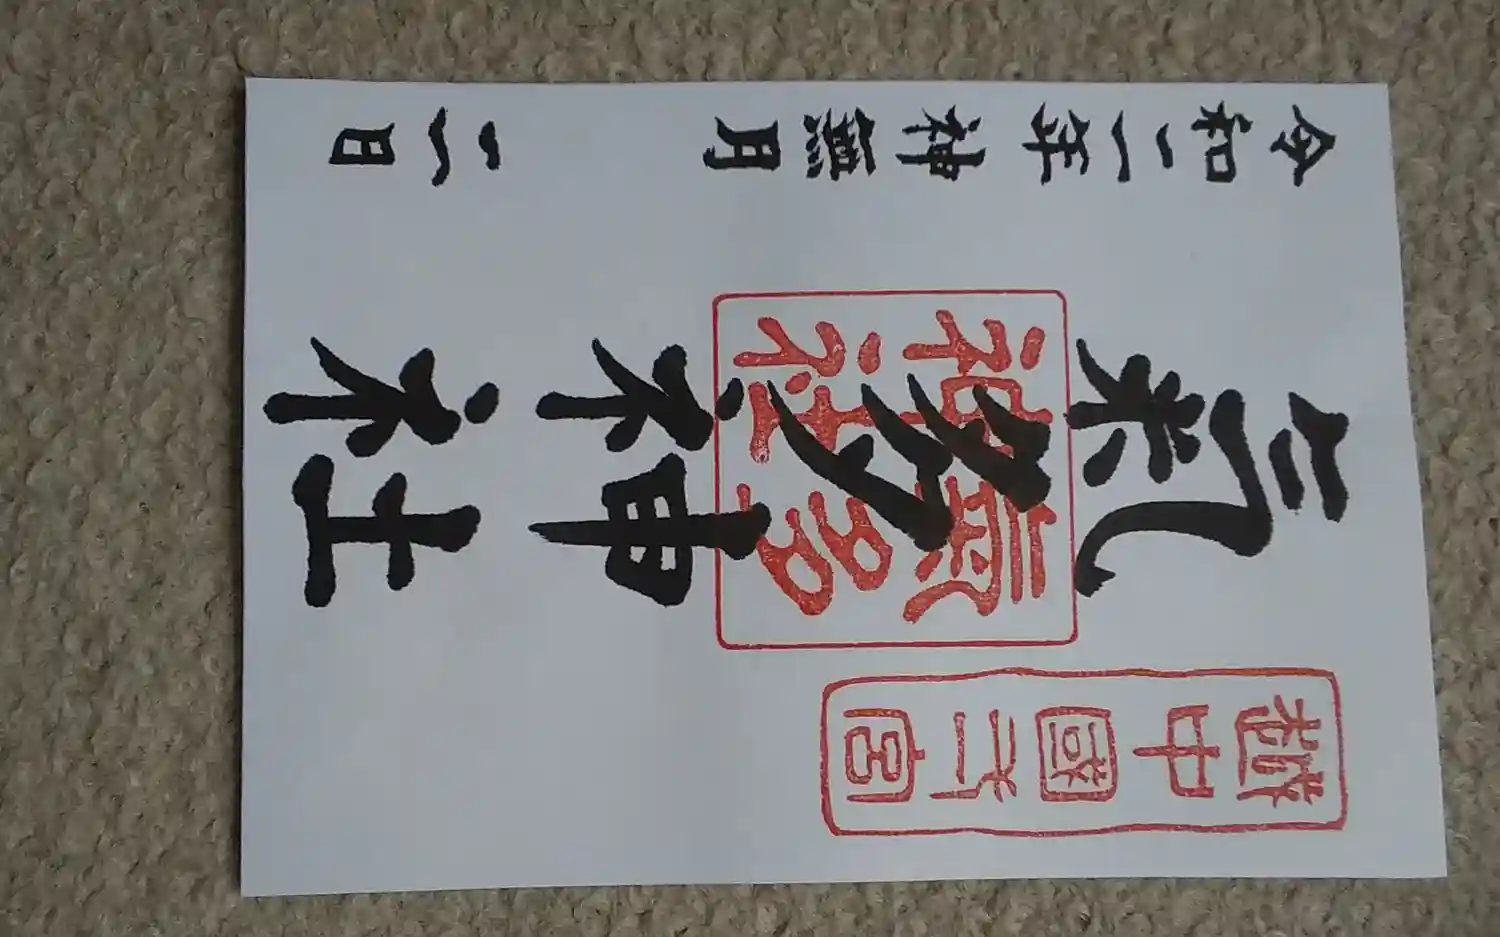 越中國一宮
氣多神社
氣多
神社
令和二年神無月
日